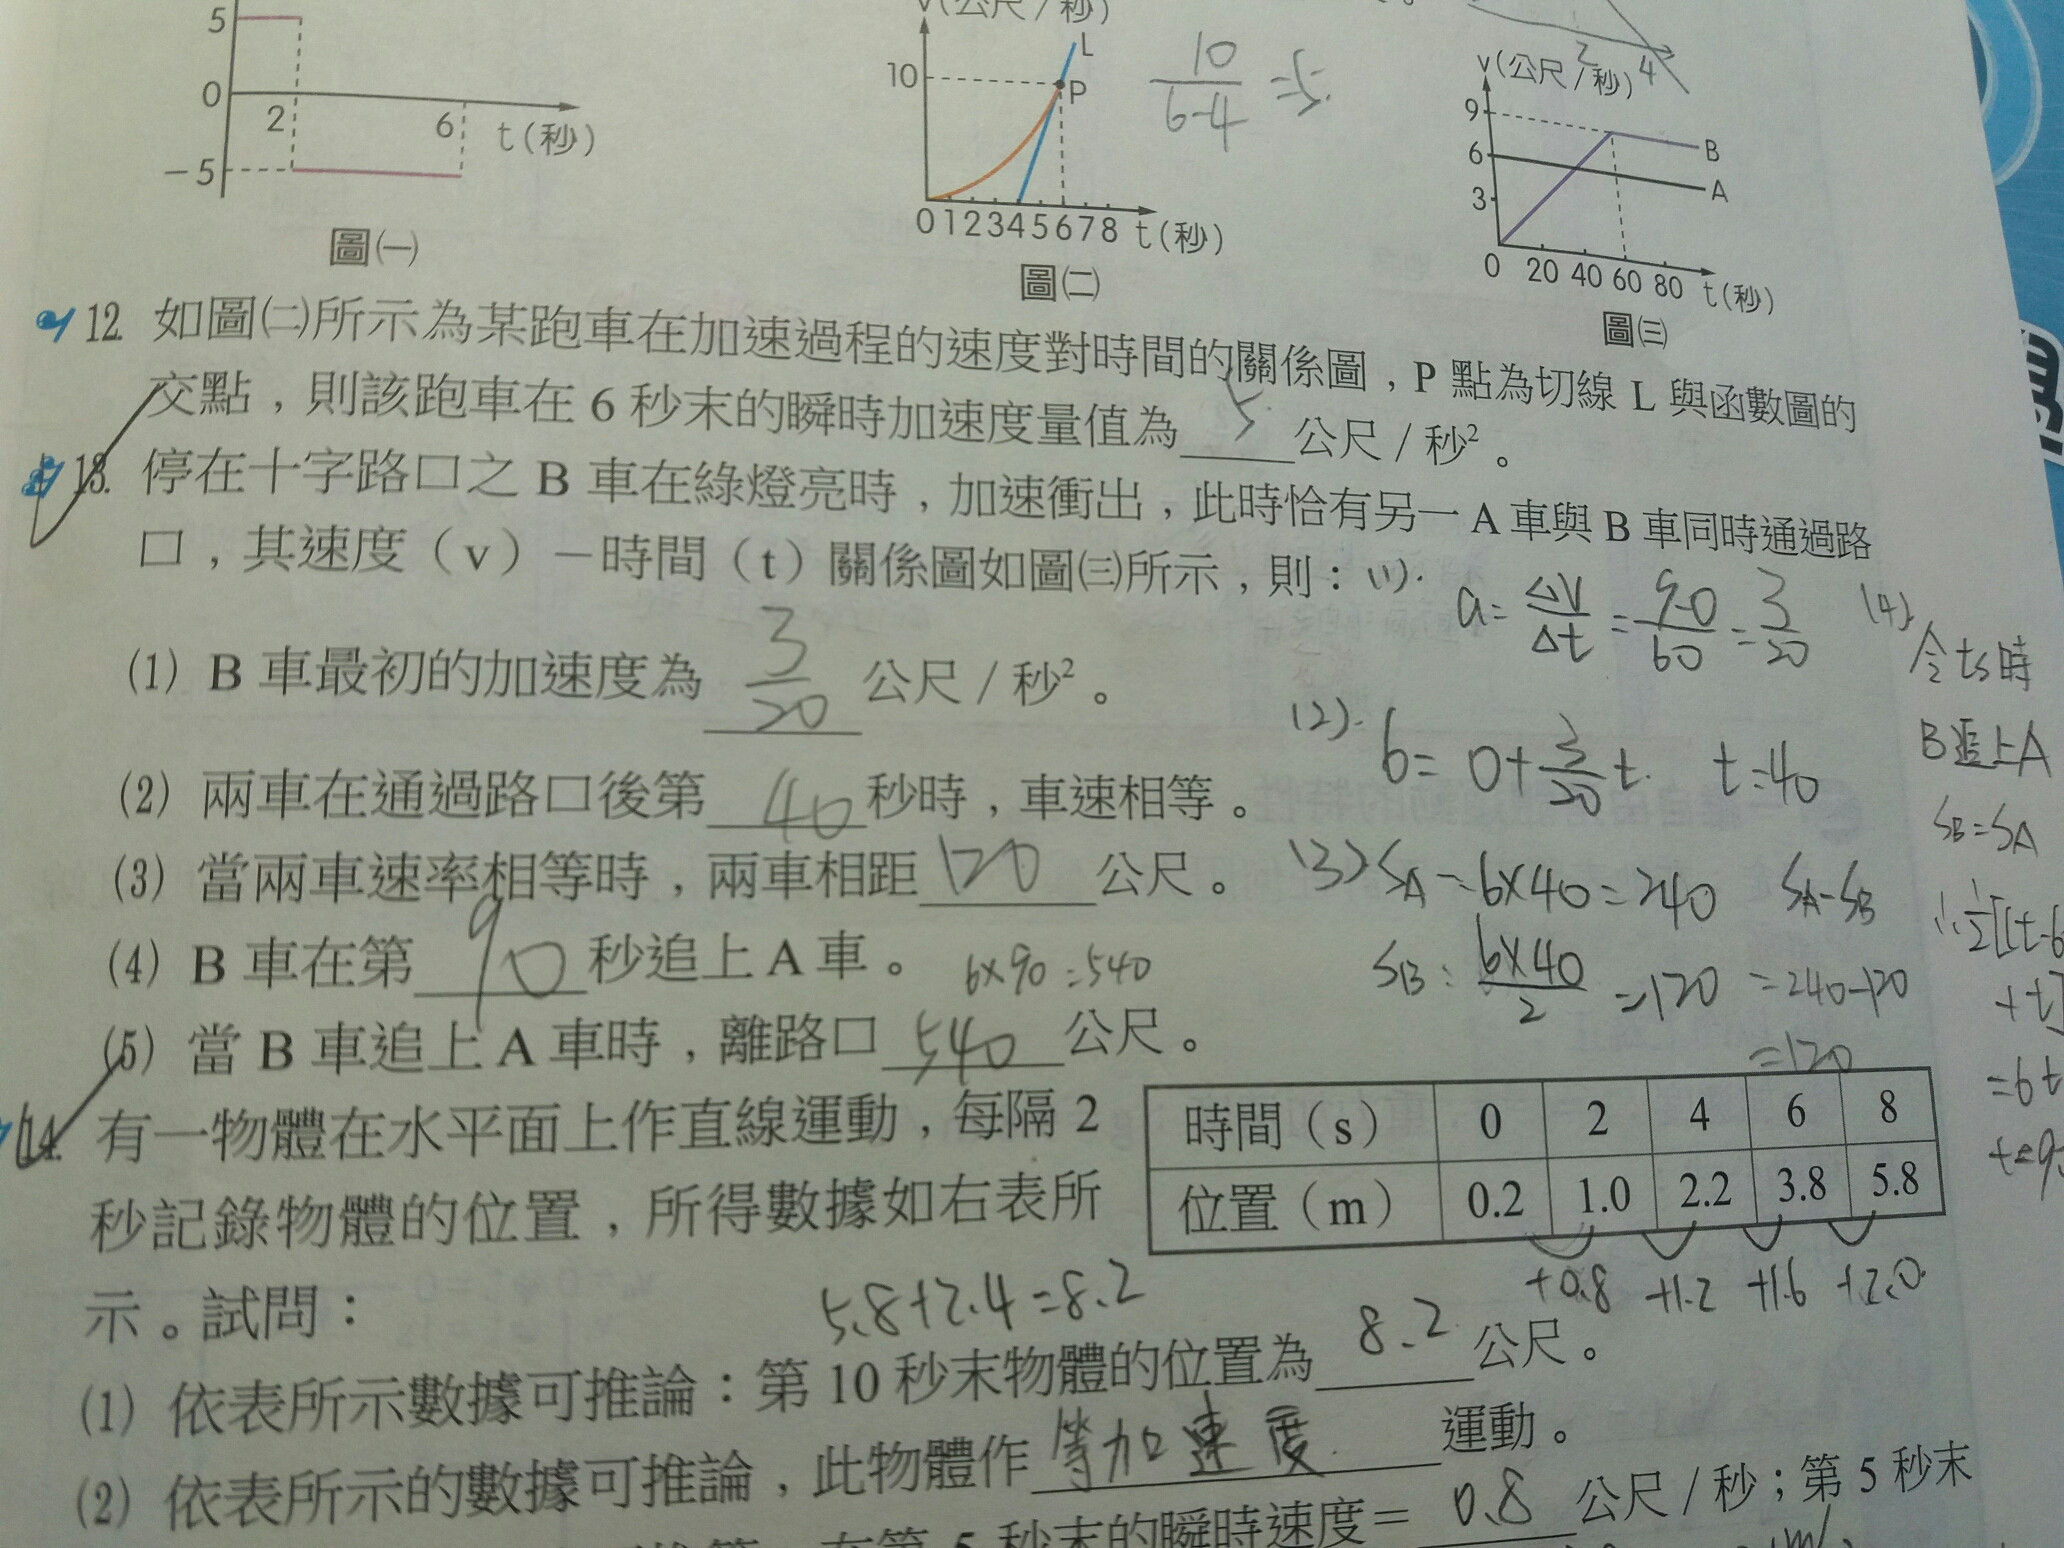 5
0
2
6
t(秒)
-5
圖㈠
v(公尺/秒)
10
L
P
0 1 2 3 4 5 6 7 8 t(秒)
圖㈡
10
6-4
=5.
2
4
v(公尺/秒)
9
6
3
B
A
0 20 40 60 80 t(秒)
圖㈢
12. 如圖㈡所示為某跑車在加速過程的速度對時間的關係圖，P 點為切線 L 與函數圖的
交點，則該跑車在 6 秒末的瞬時加速度量值為 5 公尺/秒²。
13. 停在十字路口之 B 車在綠燈亮時，加速衝出，此時恰有另一 A 車與 B 車同時通過路
口，其速度（v）－時間（t）關係圖如圖㈢所示，則：
(1). a= ΔV/Δt = 9-0/60 = 3/20
(1) B 車最初的加速度為 3/20 公尺/秒²。
(2). 6= 0+3/20 t. t=40
(2) 兩車在通過路口後第 40 秒時，車速相等。
(3) 當兩車速率相等時，兩車相距 120 公尺。
(3) SA=6×40=240 SA-SB
SB: 6×40/2 =120 =240-120
=120
(4) B 車在第 90 秒追上 A 車。 6×90=540
(5) 當 B 車追上 A 車時，離路口 540 公尺。
(4)
令ts時
B追上A
SB=SA
∴½[(t-6
+t]
=6t
t=9
14. 有一物體在水平面上作直線運動，每隔 2
秒記錄物體的位置，所得數據如右表所
示。試問：
時間（s） 0 2 4 6 8
位置（m） 0.2 1.0 2.2 3.8 5.8
+0.8 +1.2 +1.6 +2.0
5.8+2.4=8.2
(1) 依表所示數據可推論：第 10 秒末物體的位置為 8.2 公尺。
(2) 依表所示的數據可推論，此物體作 等加速度 運動。
在第 5 秒末的瞬時速度＝ 0.8 公尺/秒；第 5 秒末